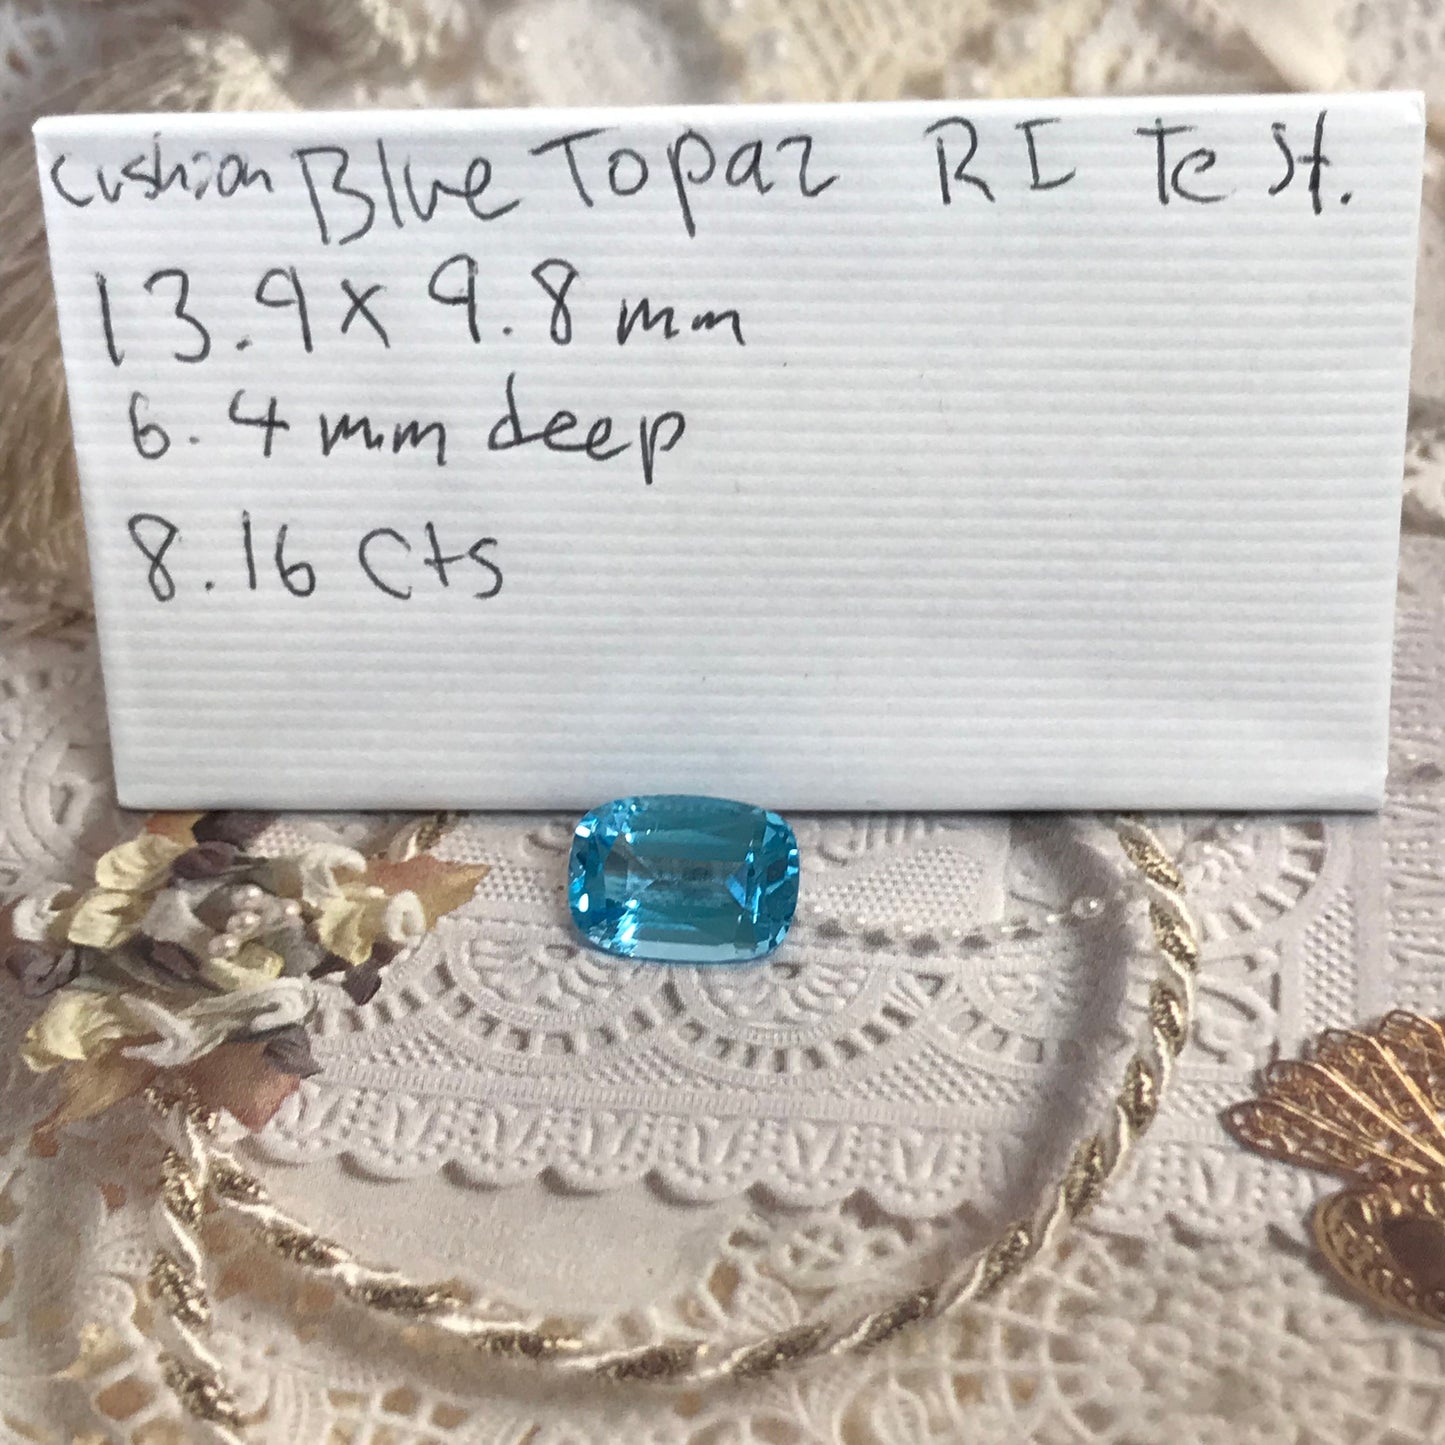 Cushion Blue Topaz RI Test.
13.9 x 9.8 mm
6.4 mm deep
8.16 Cts